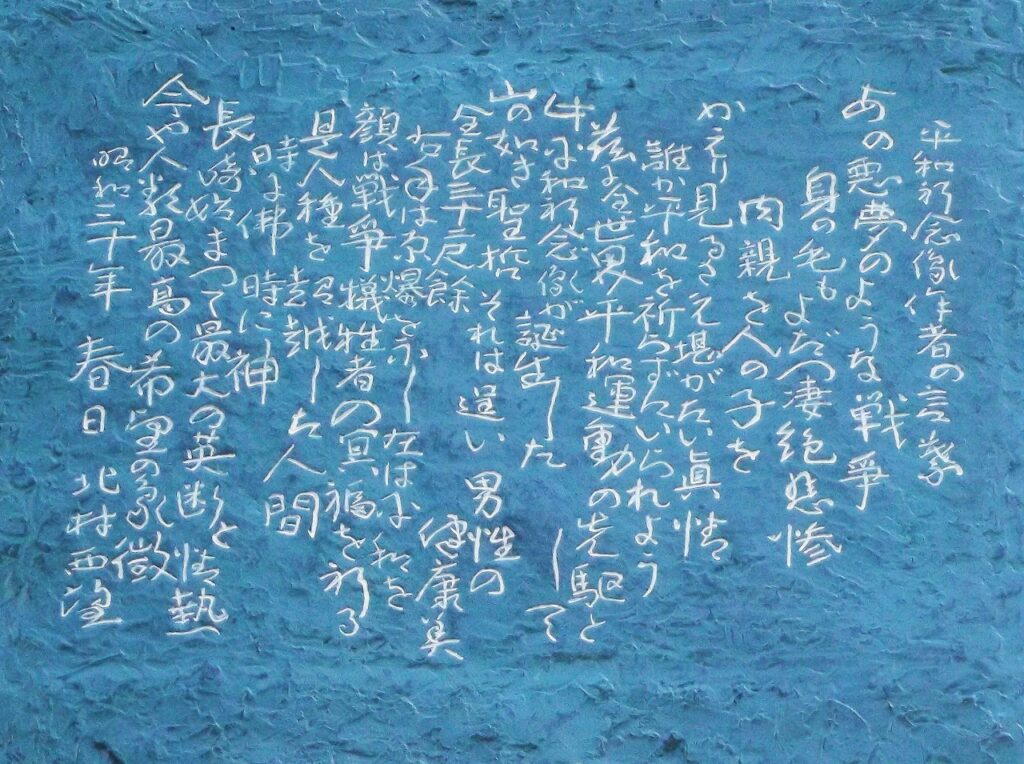 平和祈念像作者の言葉
あの悪夢のような戦爭
身の毛もよだつ凄絶悲惨
肉親を人の子を
かえり見るさえ堪がたい眞情
誰か平和を祈らずにいられよう
茲に全世界平和運動の先駆として
平和祈念像が誕生した
山の如き聖哲 それは逞い男性の健康美
全長三十二尺餘
右手は原爆を示し左は平和を
顔は戦爭犠牲者の冥福を祈る
是人種を超越した人間
時に佛 時に神
長崎始まって最大の英断と情熱
今や人類最高の希望の象徴
昭和三十年 春日 北村西望